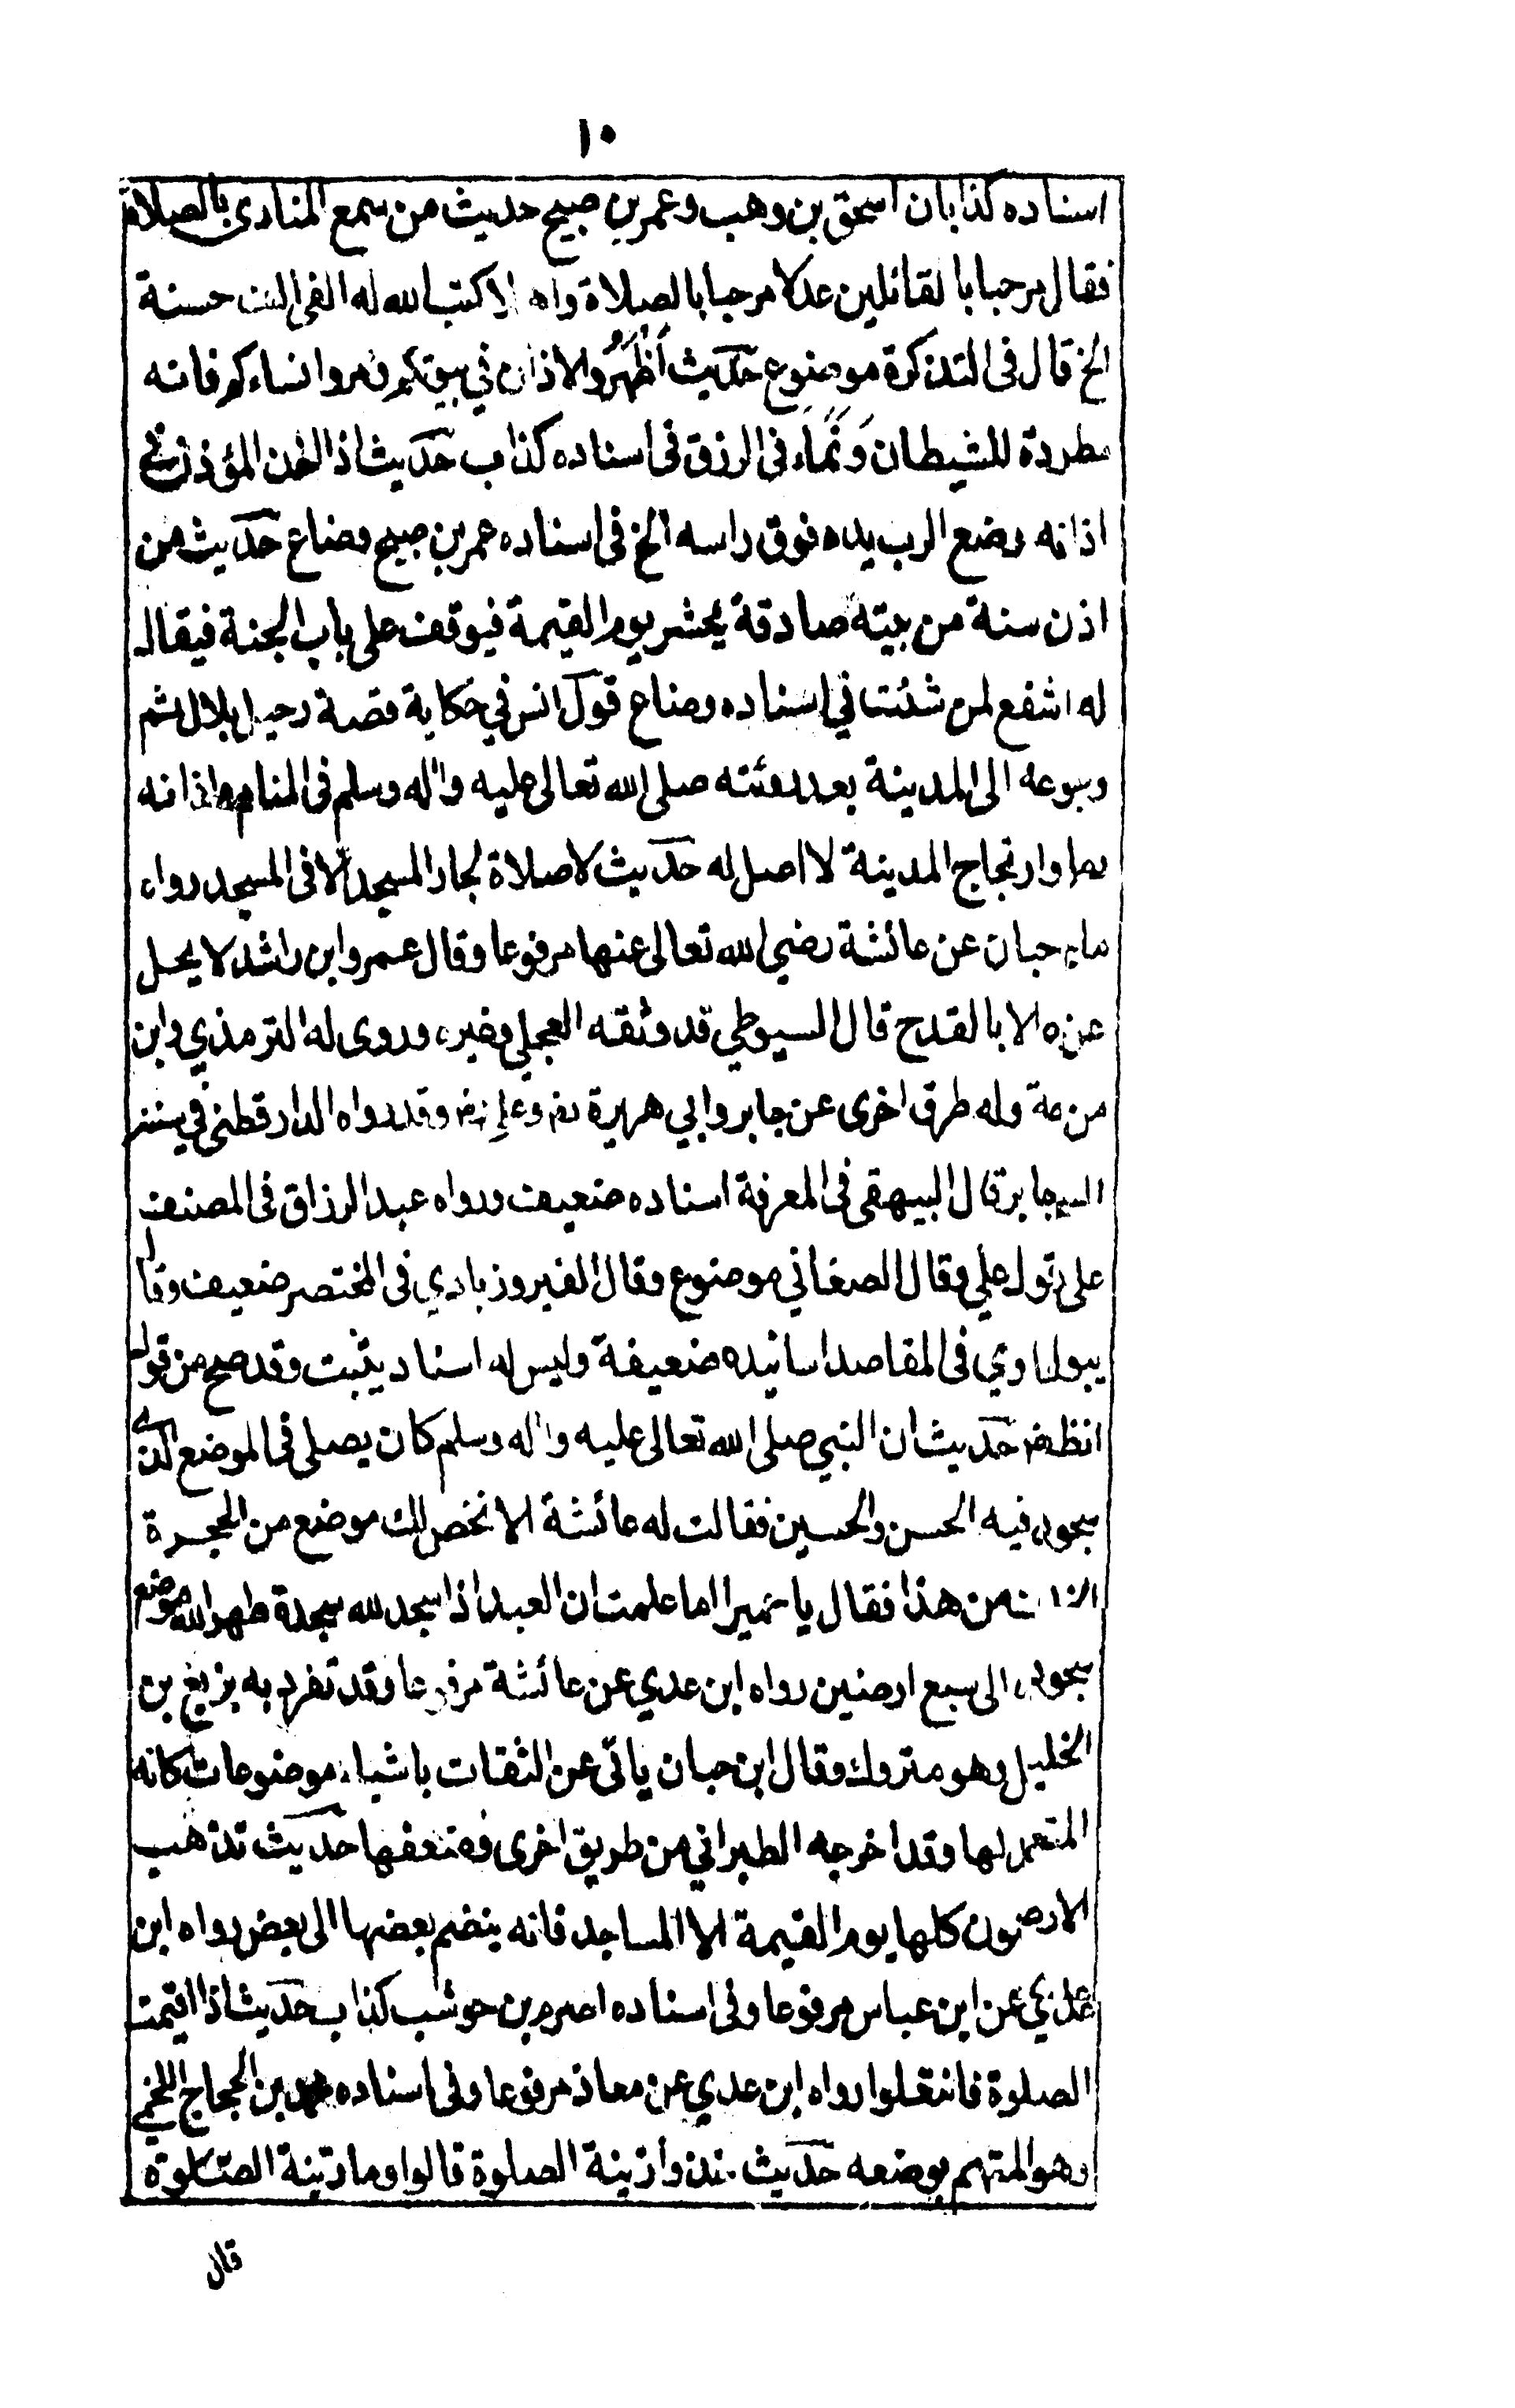 ١٠
اسناده كذابان اسحق بن وهب وعمر بن صبيح حديث من سمع المنادى بالصلاة
فقال مرحبا بالقائلين عدلا مرحبا بالصلاة واهلا كتب الله له الفى الف حسنة
الخ قال فى التذكرة موضوع حديث اظهروا الاذان في بيوتكم ومروا نساءكم فانه
مطردة للشيطان ونماء فى الرزق فى اسناده كذاب حديث اذا اذن المؤذن في
اذانه وضع الرب يده فوق راسه الخ فى اسناده عمر بن صبيح وضاع حديث من
اذن سنة من نيته صادقة يحشر يوم القيمة فيوقف على باب الجنة فيقال
له اشفع لمن شئت في اسناده وضاع قول انس في حكاية قصة رحيل بلال ثم
الى المدينة بعد صلى الله تعالى عليه واله وسلم فى المنام واذانه
بها وارتجاج المدينة لا اصل له حديث لا صلاة لجار المسجد الا فى المسجد رواه
حبان عن عائشة رضي الله تعالى عنها مرفوعا وقال عمرو ابن راشد لا يحل
الا بالقدح قال السيوطي قد وثقه العجلي وغيره وروى له الترمذي وابن
وله طرق اخرى عن جابر وابي هريرة وقد رواه الدارقطنى في سننه
جابر قال البيهقى فى المعرفة اسناده ضعيف ورواه عبد الرزاق فى المصنف
على قول علي وقال الصغاني موضوع وقال الفيروزبادي فى المختصر ضعيف وقال
فى المقاصد اسانيده ضعيفة وليس له اسناد يثبت وقد صح من قول
حديث ان النبي صلى الله تعالى عليه واله وسلم كان يصلى فى الموضع الذى
فيه الحسن والحسين فقالت له عائشة الا نخص لك موضع من الحجرة
من هذا فقال يا حميرا اما علمت ان العبد اذا سجد لله سجدة طهر الله موضع
سجوده الى سبع ارضين رواه ابن عدي عن عائشة مرفوعا وقد تفرد به بزيغ بن
الخليل وهو متروك وقال ابن حبان ياتى عن الثقات باشياء موضوعات كانه
المتعمد لها وقد اخرجه الطبراني من طريق اخرى وضعفها حديث تذهب
الارضون كلها يوم القيمة الا المساجد فانه ينضم بعضها الى بعض رواه ابن
عدي عن ابن عباس مرفوعا وفى اسناده اصرم بن حوشب كذاب حديث اذا اقيمت
الصلوة فانتعلوا رواه ابن عدي عن معاذ مرفوعا وفى اسناده محمد بن الحجاج اللخمي
وهو المتهم بوضعه حديث زينة الصلوة قالوا وما زينة الصلوة
قال